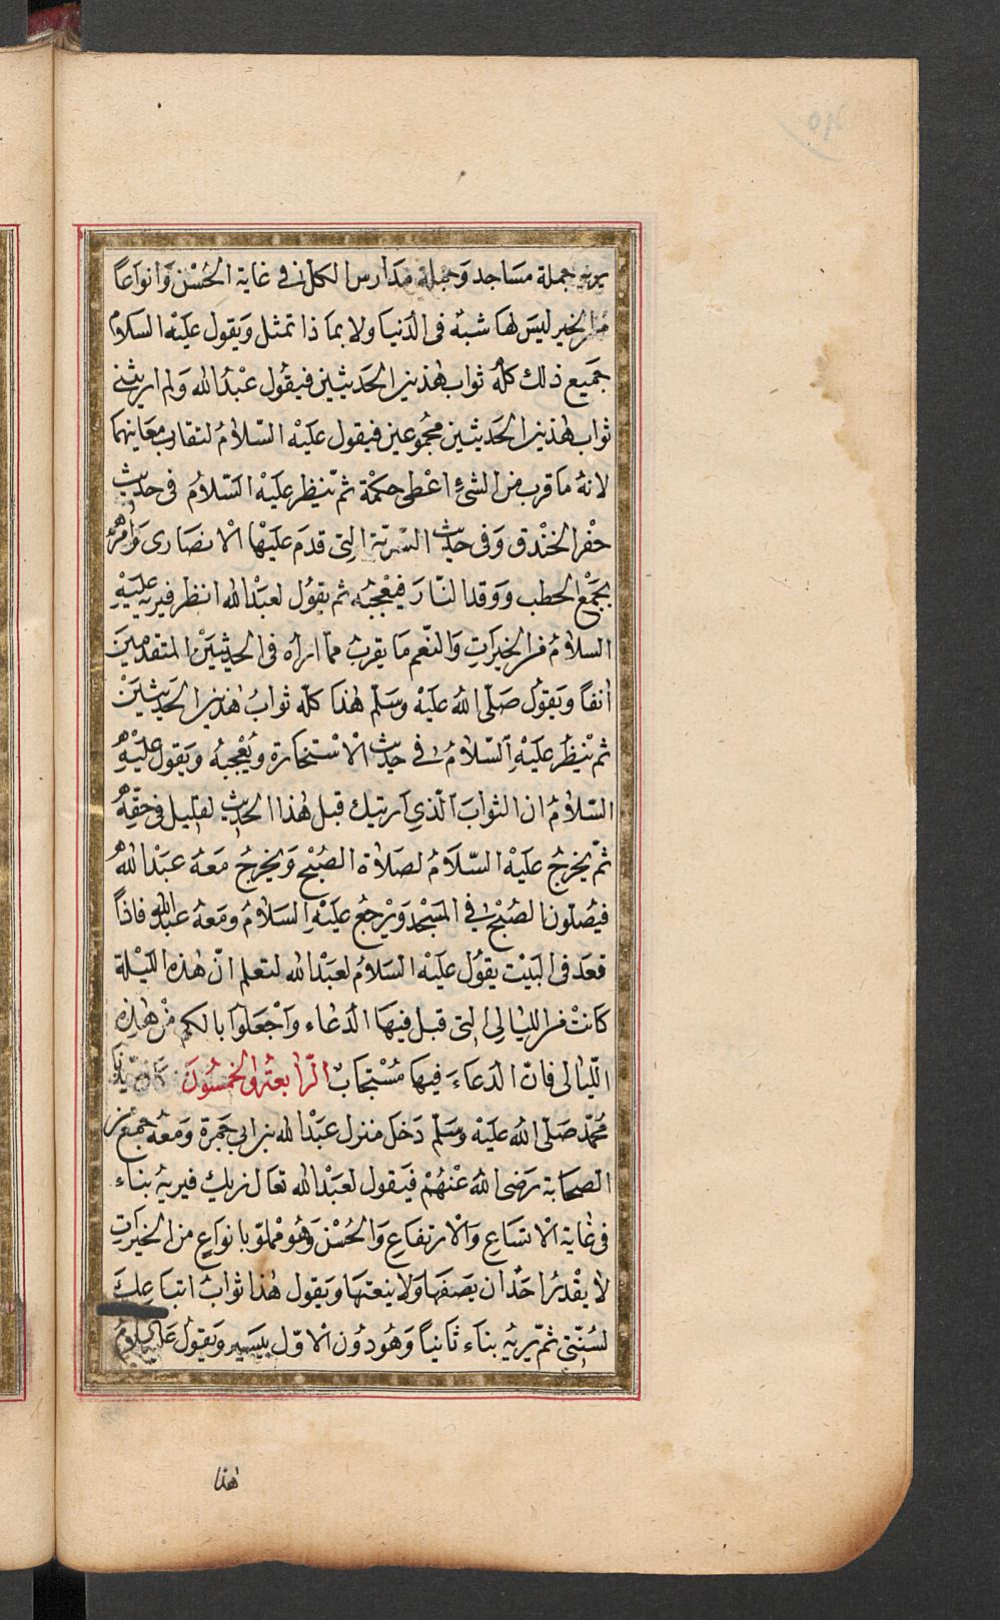 يريه جملة مساجد وجملة مدارس الكل في غاية الحُسْن وَانواعًا
من الخير ليسَ لهَا شبهٌ فى الدّنيا ولا بماذا تمثل وَيقول عليْه السَلام
جميع ذلك كلّهُ ثواب هٰذين الحَديثين فيقُول عبْدُ الله وَلم اريتنى
ثواب هٰذين الحَديثين مجُموعين فيقول عليْه السّلامُ لتقارب معَانيهما
لانهُ ما قرب من الشئِ اعْطى حكمْهُ ثم ينظر عليْهْ السّلامُ فى حديث
حفْر الخنْدق وَفى حديث السّرية التى قدمَ عليْها الانصَارى وَامرهُمْ
بجَمْع الحطب ووَقد النّارَ فيعْجبُه ثم يقوُل لعَبْد الله انظر فيريه عليْهِ
السلامُ من الخيرَاتِ وَالنّعم مَا يقربُ ممّا ارأه فى الحديثيَنْ المتقدّمينَ
اٰنفًا ويَقوُل صَلّى اللهُ عليَهْ وسَلّم هٰذا كلّه ثوابُ هٰذين الحَديثيَنْ
ثم ينظُر عليْهِ السّلامُ في حديث الاسْتخارة ويُعْجبهُ وَيقول عليْهِ
السّلامُ ان الثوابَ الّذي اريتك قبل هٰذا الحديث لقليل فى حقّهِ
ثمّ يخرجُ عليَهْ السّلَامُ لصَلاة الصُبْح وَيخرجُ مَعَهُ عبَدْ اللهُ
فيُصَلّون الصُبْحَ في المسَجْد وَيرْجع عليَهْ السَلامُ ومَعهُ عبد الله فاذا
قعدَ فى البَيْت يقوُل عليَهْ السَلامُ لعبَدْ الله لتعلم انّ هٰذه الليَلة
كانتْ من الليالى التى قبل فيهَا الدّعَاء وَاجْعَلوُا بالكم منْ هٰذهِ
اللّيالى فانّ الدّعاءَ فيها مسُتْجابٌ الرّابعَةُ والخمسُونَ كانّ سيّدنَا
محُمّد صَلّى اللهُ عليَهْ وسَلّم دَخل منزل عبَدْ الله بن ابى جمرَة وَمعَهُ جمعٌ من
الصحَابة رَضى اللهُ عَنهُمْ فيقول لعبَدْ الله تعال نريك فيريهُ بناء
فى غاية الاتساعِ وَالارتفاعِ وَالحُسْن وَهُو ممْلوّ بانواعٍ من الخيرَاتِ
لا يقدرُ احَدٌ ان يصَفهَا وَلا ينعتهَا وَيقول هٰذا ثوابُ اتباعكَ
لسُنّتى ثمّ يريهِ بناء ثانياً وَهُو دُون الاوّل بيسَير وَيقول عليه السلامُ
هٰذا